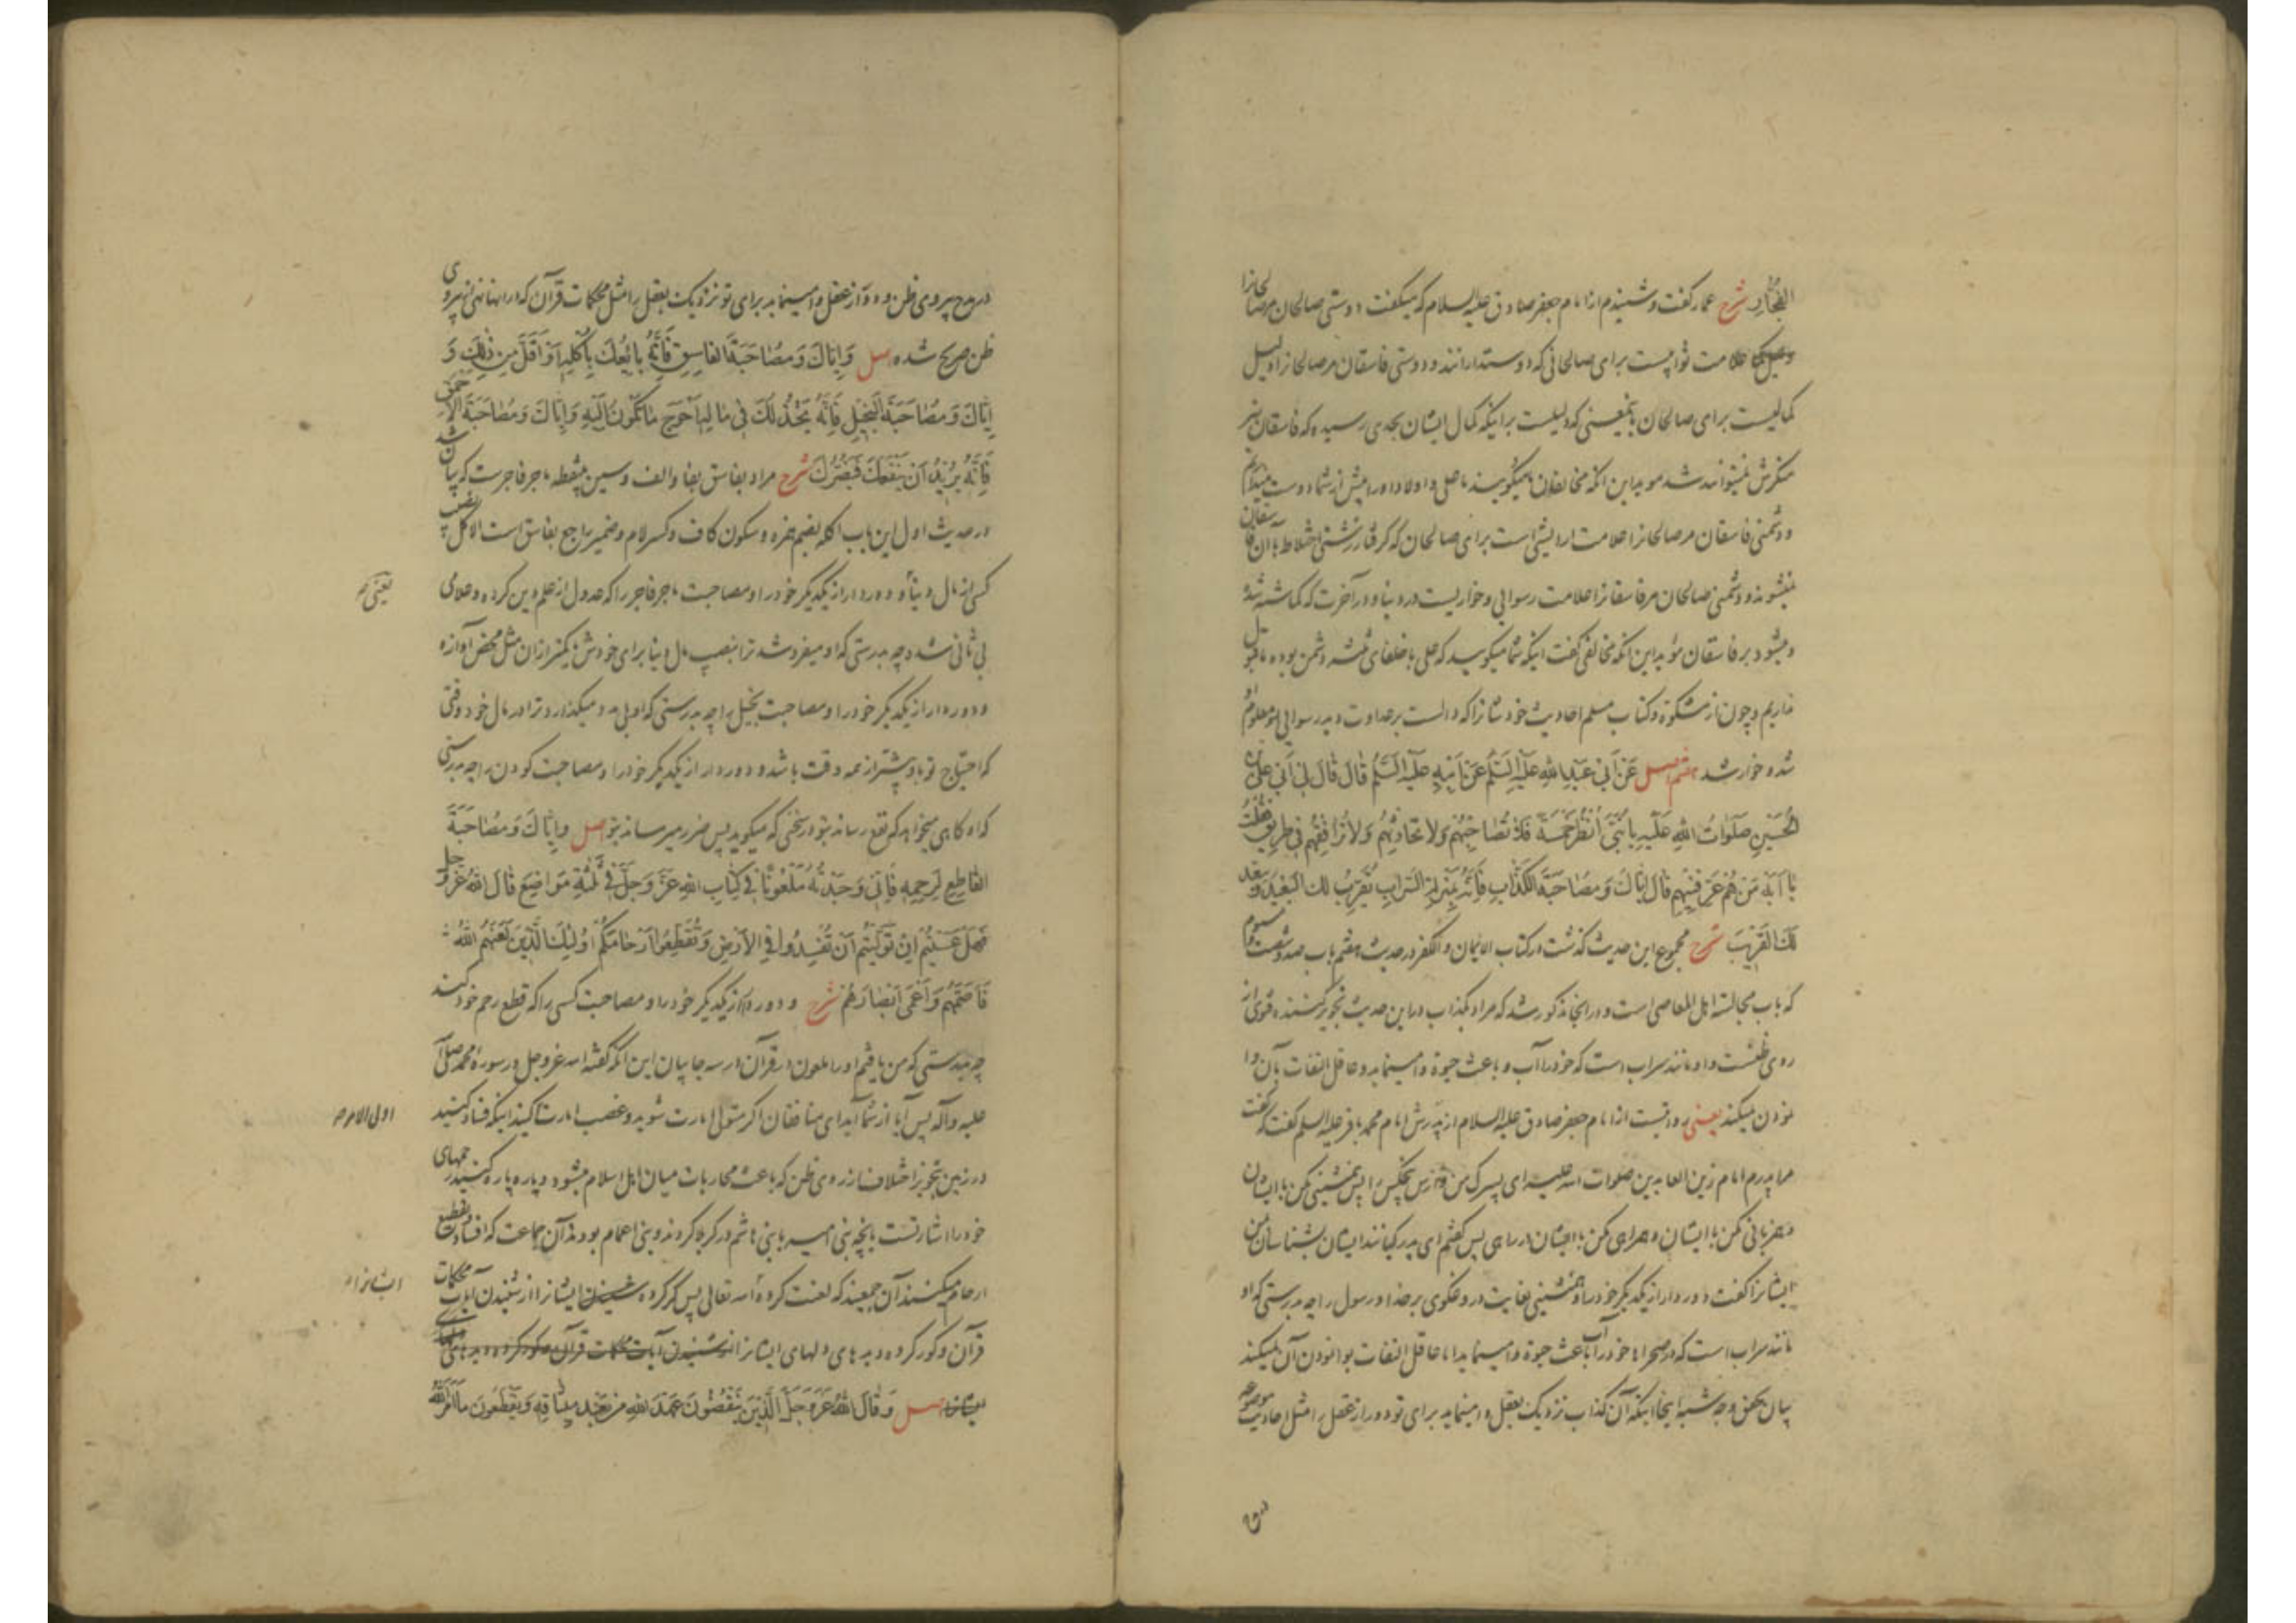 الفُجَّارِ شرح عمار گفت و شنیدم از امام جعفر صادق علیه السلام که میگفت دوستی صالحان مر صالحانرا
علامت ثوابست برای صالحانی که دوستدارانند و دوستی فاسقان مر صالحانرا دلیل
کمالیست برای صالحان باینمعنی که دلیلست بر اینکه کمال ایشان بحدی رسیده که فاسقان نیز
منکرش نمیتوانند شد موید این آنکه مخالفان میگویند ما علی و اولاد او را بیش از شما دوست میداریم
و دشمنی فاسقان مر صالحانرا علامت آرایشی است برای صالحان که گرفتار زشتی اختلاط با آن فاسقان
نمیشوند و دشمنی صالحان مر فاسقانرا علامت رسوایی و خواریست در دنیا و در آخرت که گماشته شده
و میشود بر فاسقان مؤید این آنکه مخالفی گفت اینکه شما میگویید که علی با خلفای ثلثه دشمن بوده ما قبول
نداریم و چون از مشکوة و کتاب مسلم احادیث خودشانرا که دالست بر عداوت دید رسوایی او معلوم او
شد و خوار شد هفتم اصل عَنْ أَبِي عَبْدِ اللهِ عَلَيْهِ السَّلَمُ عَنْ أَبِيهِ عَلَيْهِ السَّلَمُ قَالَ قَالَ لِي أَبِي عَلِيُّ بْنُ
الْحُسَيْنِ صَلَوَاتُ اللهِ عَلَيْهِ يَا بُنَيَّ انْظُرْ خَمْسَةً فَلَا تُصَاحِبْهُمْ وَلَا تُحَادِثْهُمْ وَلَا تُرَافِقْهُمْ فِي طَرِيقٍ فَقُلْتُ
يَا أَبَهْ مَنْ هُمْ عَرِّفْنِيهِمْ قَالَ إِيَّاكَ وَمُصَاحَبَةَ الْكَذَّابِ فَإِنَّهُ بِمَنْزِلَةِ السَّرَابِ يُقَرِّبُ لَكَ الْبَعِيدَ وَيُبَعِّدُ
لَكَ الْقَرِيبَ شرح مجموع این حدیث گذشت در کتاب الایمان والکفر در حدیث هفتم باب صد و شصت و سوم
که باب مجالسة اهل المعاصی است و در آنجا مذکور شد که مراد بکذاب در این حدیث تجویز کننده فتوی از
روی ظنست و او مانند سراب است که خود را آب و باعث حیوة وامینماید و عاقل التفات بآن وا
نمودن نمیکند یعنی روایتست از امام جعفر صادق علیه السلام از پدرش امام محمد باقر علیه السلم گفت که گفت
مرا پدرم امام زین العابدین صلوات الله علیه ای پسرک من وارس پنج کس را پس همنشینی مکن با ایشان
و همزبانی مکن با ایشان و همراهی مکن با ایشان در راهی پس گفتم ای پدر کیانند ایشان بشناسان بمن
ایشانرا گفت دور دار از یکدیگر خود را و همنشینی بغایت دروغگوی بر خدا و رسول را چه بدرستی که او
مانند سراب است که در صحراها خود را آب باعث حیوة وامینماید اما عاقل التفات بوانمودن آن نمیکند
بیان وجه شبه اینجا اینکه آن کذاب نزدیک بعقل وامینماید برای تو دور از عقل را مثل احادیث موضوعه
در مدح پیروی ظن و دور از عقل وامینماید برای تو نزدیک بعقل را مثل محکمات قرآن که در آنها نهی از پیروی
ظن صریح شده اصل وَإِيَّاكَ وَمُصَاحَبَةَ الْفَاسِقِ فَإِنَّهُ بَائِعُكَ بِأُكْلَةٍ أَوْ أَقَلَّ مِنْ ذَلِكَ وَ
إِيَّاكَ وَمُصَاحَبَةَ الْبَخِيلِ فَإِنَّهُ يَخْذُلُكَ فِي مَالِهِ أَحْوَجَ مَا تَكُونُ إِلَيْهِ وَإِيَّاكَ وَمُصَاحَبَةَ الْأَحْمَقِ
فَإِنَّهُ يُرِيدُ أَنْ يَنْفَعَكَ فَيَضُرُّكَ شرح مراد بفاسق بفا و الف و سین بینقطه ماجر فاجرست که بیان شد
در حدیث اول این باب اکله بضم همزه و سکون کاف و کسر لام و ضمیر راجع بفاسق است الاکل نصیب
کسی از مال دنیا و دور دار از یکدیگر خود را و مصاحبت ماجر فاجر را که عدول از علم دین کرده و علامی یعنی
بی ثانی شده چه بدرستی که او میفروشد ترا بنصیب مال دنیا برای خودش یا کمتر از آن مثل محض آوازه
و دور دار از یکدیگر خود را و مصاحبت بخیل را چه بدرستی که او بی مدد میگذارد ترا در مال خود وقتی
که احتیاج تو باو بیشتر از همه وقت باشد و دور دار از یکدیگر خود را و مصاحبت کودن را چه بدرستی
که او گاهی میخواهد که نفع رساند بتو در سخنی که میگوید پس ضرر میرساند بتو اصل وَإِيَّاكَ وَمُصَاحَبَةَ
الْقَاطِعِ لِرَحِمِهِ فَإِنِّي وَجَدْتُهُ مَلْعُونًا فِي كِتَابِ اللهِ عَزَّ وَجَلَّ فِي ثَلَثَةِ مَوَاضِعَ قَالَ اللهُ عَزَّ وَجَلَّ
فَهَلْ عَسَيْتُمْ إِنْ تَوَلَّيْتُمْ أَنْ تُفْسِدُوا فِي الْأَرْضِ وَتُقَطِّعُوا أَرْحَامَكُمْ أُولَئِكَ الَّذِينَ لَعَنَهُمُ اللهُ
فَأَصَمَّهُمْ وَأَعْمَى أَبْصَارَهُمْ شرح و دور دار از یکدیگر خود را و مصاحبت کسی را که قطع رحم خود کند
چه بدرستی که من یافتم او را ملعون در قرآن در سه جا بیان این آنکه گفته الله عز و جل در سورهٔ محمد صلی الله
علیه و آله پس آیا از شما آید ای منافقان اگر متولی امارت شوید و غصب امارت کنید اینکه فساد کنید اولی الامر
در زمین بتجویز اختلاف از روی ظن که باعث محاربات میان اهل اسلام میشود و پاره پاره کنید رحمهای
خود را اشارتست بآنچه بنی امیه با بنی هاشم در کربلا کردند و بنی اعمام بودند آن جماعت که افساد و قطع
ارحام میکنند آن جمعیند که لعنت کرده الله تعالی پس کر کرده ایشانرا از شنیدن آیات محکمات ایشانرا
قرآن و کور کرده دیدهای دلهای ایشانرا از شنیدن آیات محکمات قرآن و کور کرده دیدهای
ایشانرا اصل وَقَالَ اللهُ عَزَّ وَجَلَّ الَّذِينَ يَنْقُضُونَ عَهْدَ اللهِ مِنْ بَعْدِ مِيثَاقِهِ وَيَقْطَعُونَ مَا أَمَرَ اللهُ